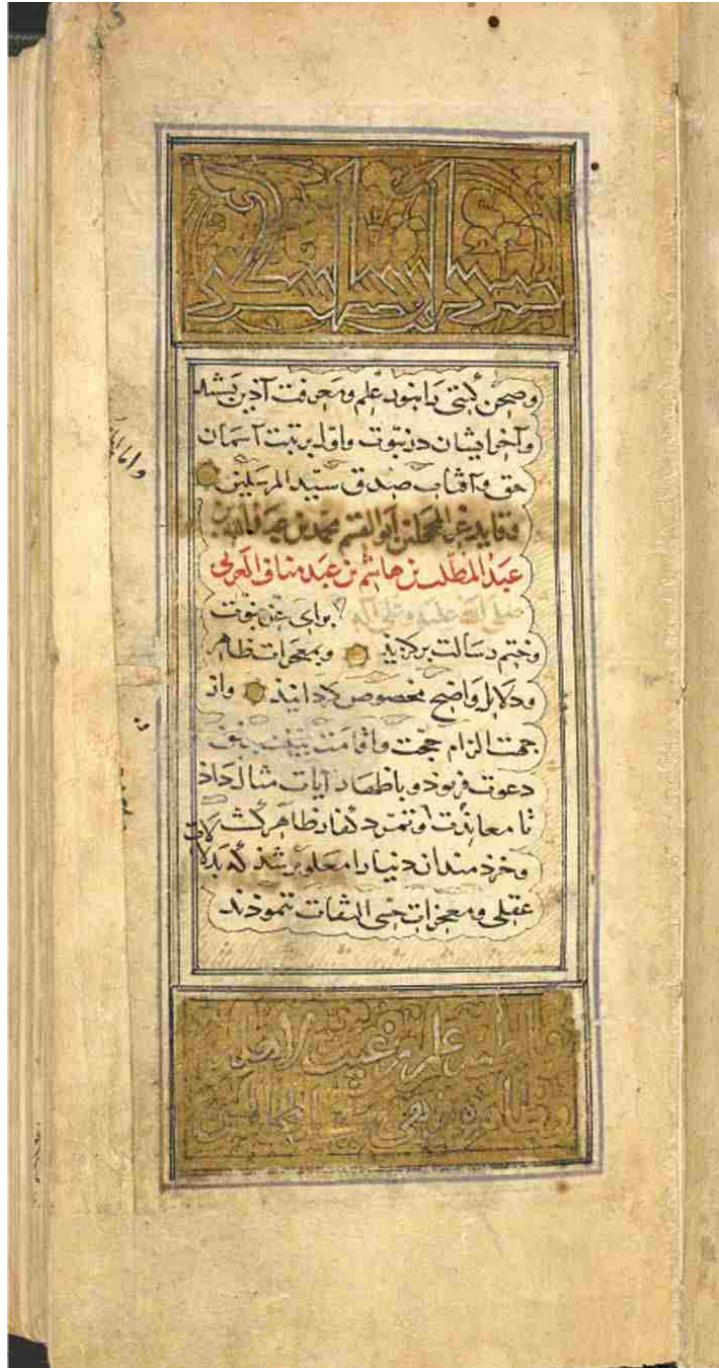 و صحن گیتی را بنور علم و معرفت آذین بشد
و آخر ایشان در نبوت و اول برتبت آسمان
حق و آفتاب صدق سید المرسلین
و قاید غر المحجلین ابو القسم محمد بن عبد الله بن
عبد المطلب بن هاشم بن عبد مناف العربی
صلی الله علیه و علی آله برای عز نبوت
و ختم رسالت برکزید و بمعجزات ظاهر
و دلایل واضح مخصوص کردانید و از
جهت الزام حجت و اقامت بینت برفق
دعوت فرمود و باظهار آیات مثال داد
تا معاندت و تمرد کفار ظاهر کشت
و خردمندان دنیا را معلوم شد که بدلالات
عقلی و معجزات حسی التفات ننمودند